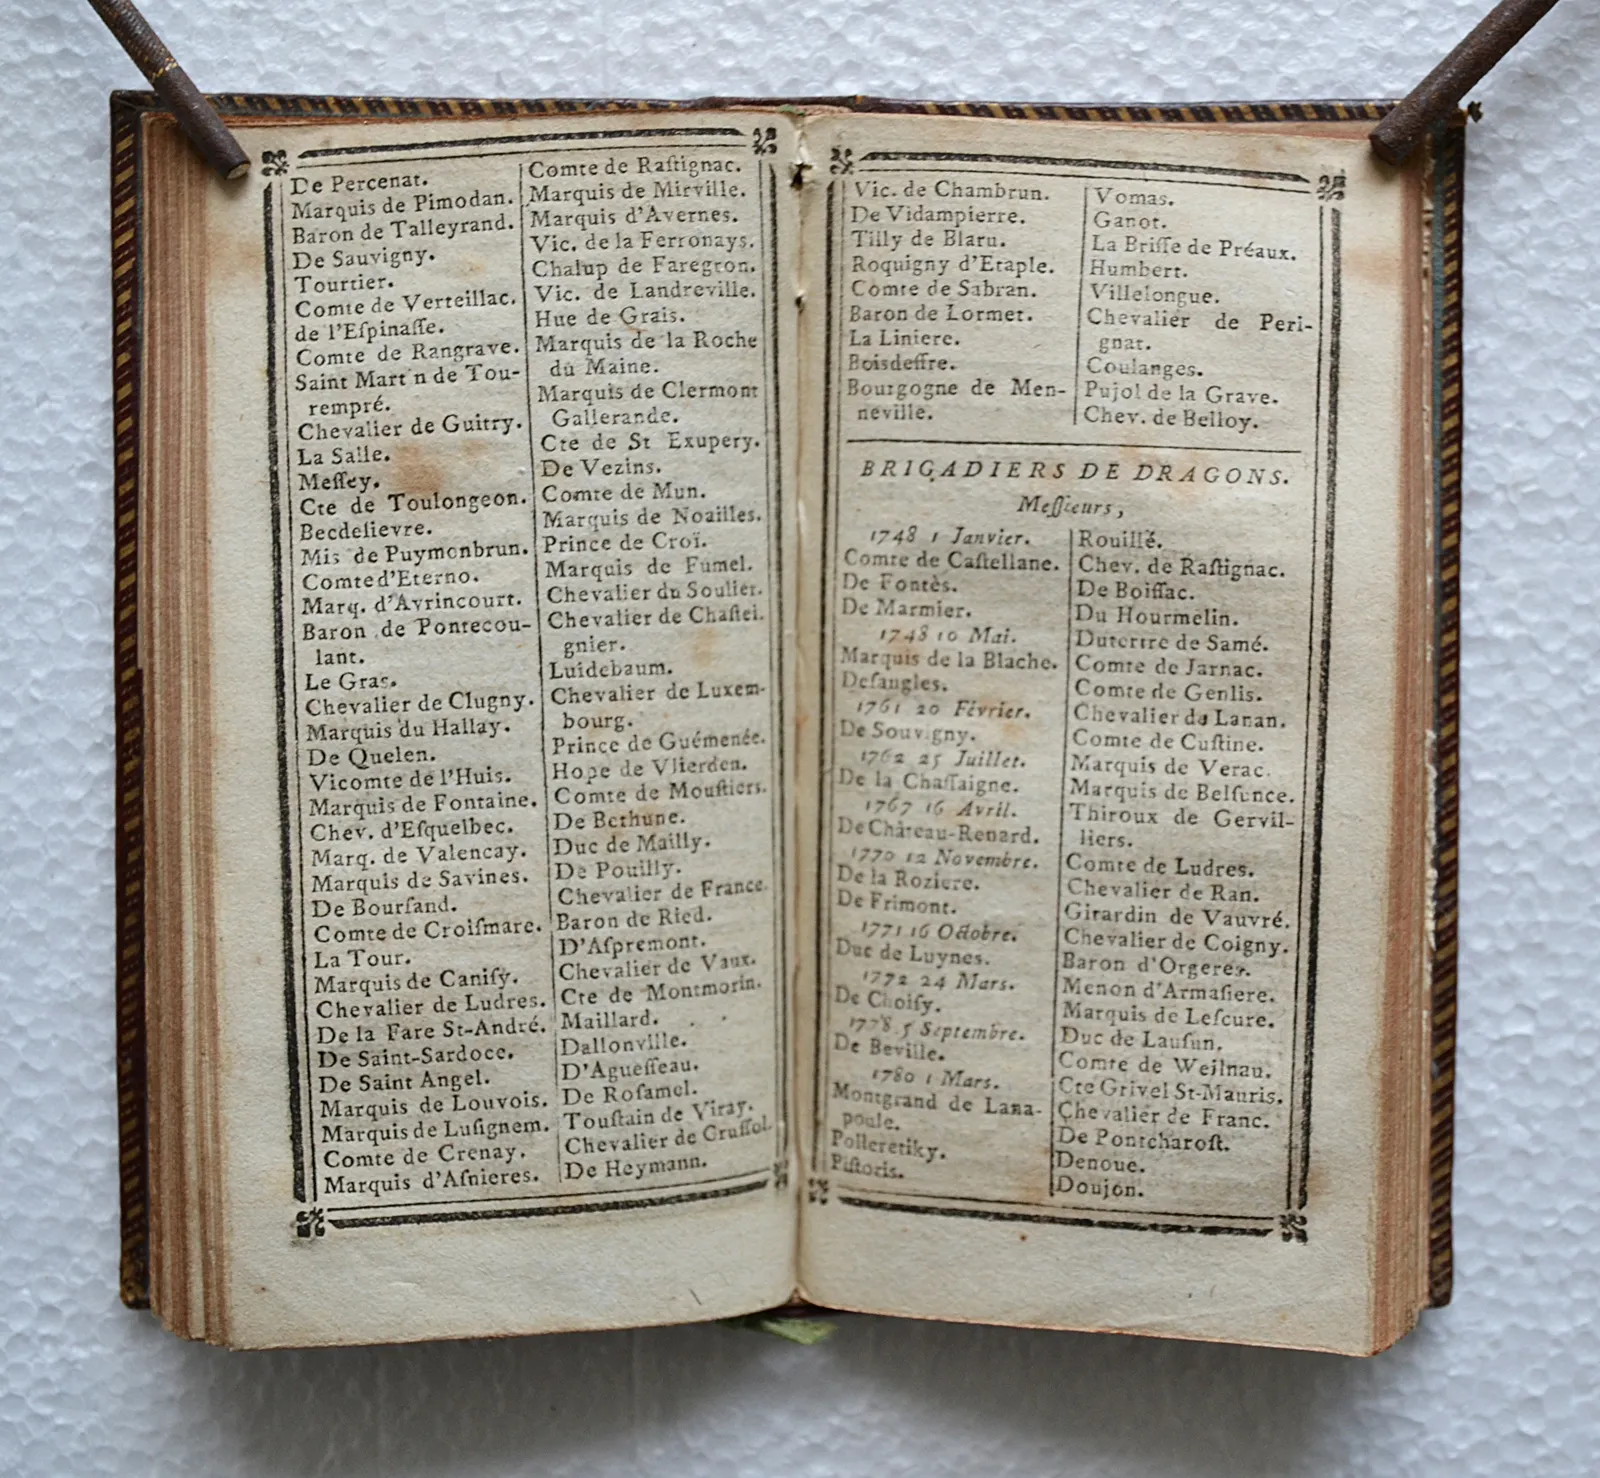 De Percenat.
Marquis de Pimodan.
Baron de Talleyrand.
De Sauvigny.
Tourtier.
Comte de Verteillac.
de l'Eſpinaſſe.
Comte de Rangrave.
Saint Mart n de Tou-
rempré.
Chevalier de Guitry.
La Salle.
Meſſey.
Cte de Toulongeon.
Becdelievre.
Mis de Puymonbrun.
Comte d'Eterno.
Marq. d'Avrincourt.
Baron de Pontecou-
lant.
Le Gras.
Chevalier de Clugny.
Marquis du Hallay.
De Quelen.
Vicomte de l'Huis.
Marquis de Fontaine.
Chev. d'Eſquelbec.
Marq. de Valencay.
Marquis de Savines.
De Bourſand.
Comte de Croiſmare.
La Tour.
Marquis de Caniſy.
Chevalier de Ludres.
De la Fare St-André.
De Saint-Sardoce.
De Saint Angel.
Marquis de Louvois.
Marquis de Luſignem.
Comte de Crenay.
Marquis d'Aſnieres.
Comte de Raſtignac.
Marquis de Mirville.
Marquis d'Avernes.
Vic. de la Ferronays.
Chalup de Faregron.
Vic. de Landreville.
Hue de Grais.
Marquis de la Roche
du Maine.
Marquis de Clermont
Gallerande.
Cte de St Exupery.
De Vezins.
Comte de Mun.
Marquis de Noailles.
Prince de Croï.
Marquis de Fumel.
Chevalier du Soulier.
Chevalier de Chaſtei.
gnier.
Luidebaum.
Chevalier de Luxem-
bourg.
Prince de Guémenée.
Hope de Vlierden.
Comte de Mouſtiers.
De Bethune.
Duc de Mailly.
De Pouilly.
Chevalier de France.
Baron de Ried.
D'Aſpremont.
Chevalier de Vaux.
Cte de Montmorin.
Maillard.
Dallonville.
D'Agueſſeau.
De Roſamel.
Touſtain de Viray.
Chevalier de Cruſſol.
De Heymann.
Vic. de Chambrun.
De Vidampierre.
Tilly de Blaru.
Roquigny d'Etaple.
Comte de Sabran.
Baron de Lormet.
La Liniere.
Boisdeffre.
Bourgogne de Men-
neville.
Vomas.
Ganot.
La Briſſe de Préaux.
Humbert.
Villelongue.
Chevalier de Peri-
gnat.
Coulanges.
Pujol de la Grave.
Chev. de Belloy.
BRIGADIERS DE DRAGONS.
Meſſieurs,
1748 1 Janvier.
Comte de Caſtellane.
De Fontès.
De Marmier.
1748 10 Mai.
Marquis de la Blache.
Deſangles.
1761 20 Février.
De Souvigny.
1762 25 Juillet.
De la Chaſſaigne.
1767 16 Avril.
De Château-Renard.
1770 12 Novembre.
De la Roziere.
De Frimont.
1771 16 Octobre.
Duc de Luynes.
1772 24 Mars.
De Choiſy.
1778 5 Septembre.
De Beville.
1780 1 Mars.
Montgrand de Lana-
poule.
Polleretiky.
Piſtoris.
Rouillé.
Chev. de Raſtignac.
De Boiſſac.
Du Hourmelin.
Dutertre de Samé.
Comte de Jarnac.
Comte de Genlis.
Chevalier de Lanan.
Comte de Cuſtine.
Marquis de Verac.
Marquis de Belſunce.
Thiroux de Gervil-
liers.
Comte de Ludres.
Chevalier de Ran.
Girardin de Vauvré.
Chevalier de Coigny.
Baron d'Orgeres.
Menon d'Armaſiere.
Marquis de Leſcure.
Duc de Lauſun.
Comte de Weilnau.
Cte Grivel St-Mauris.
Chevalier de Franc.
De Pontcharoſt.
Denoue.
Doujon.